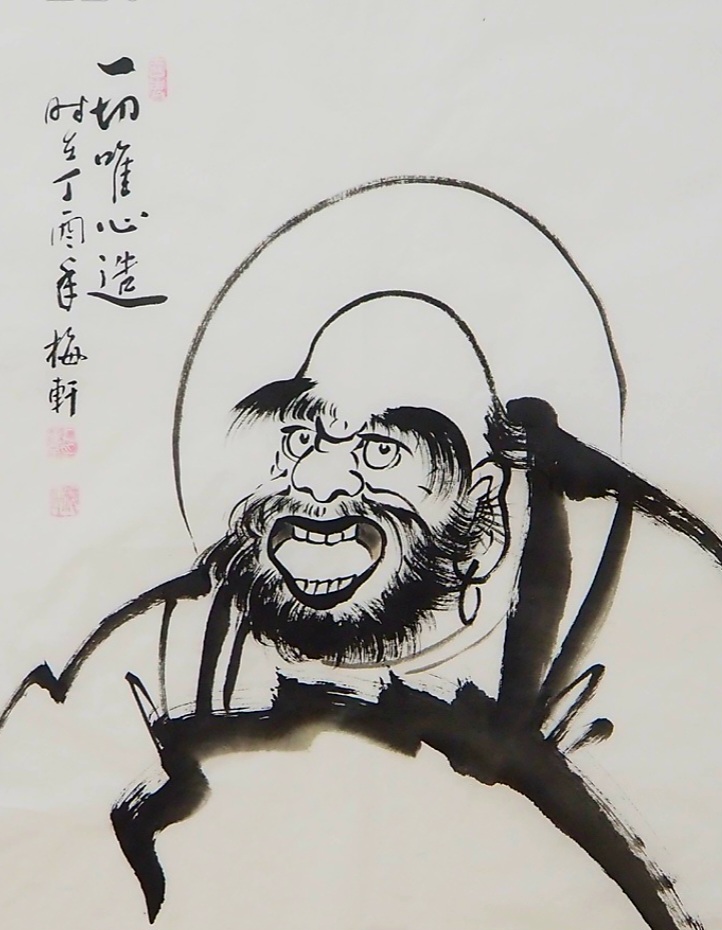 一切唯心造
时在丁酉年 梅軒